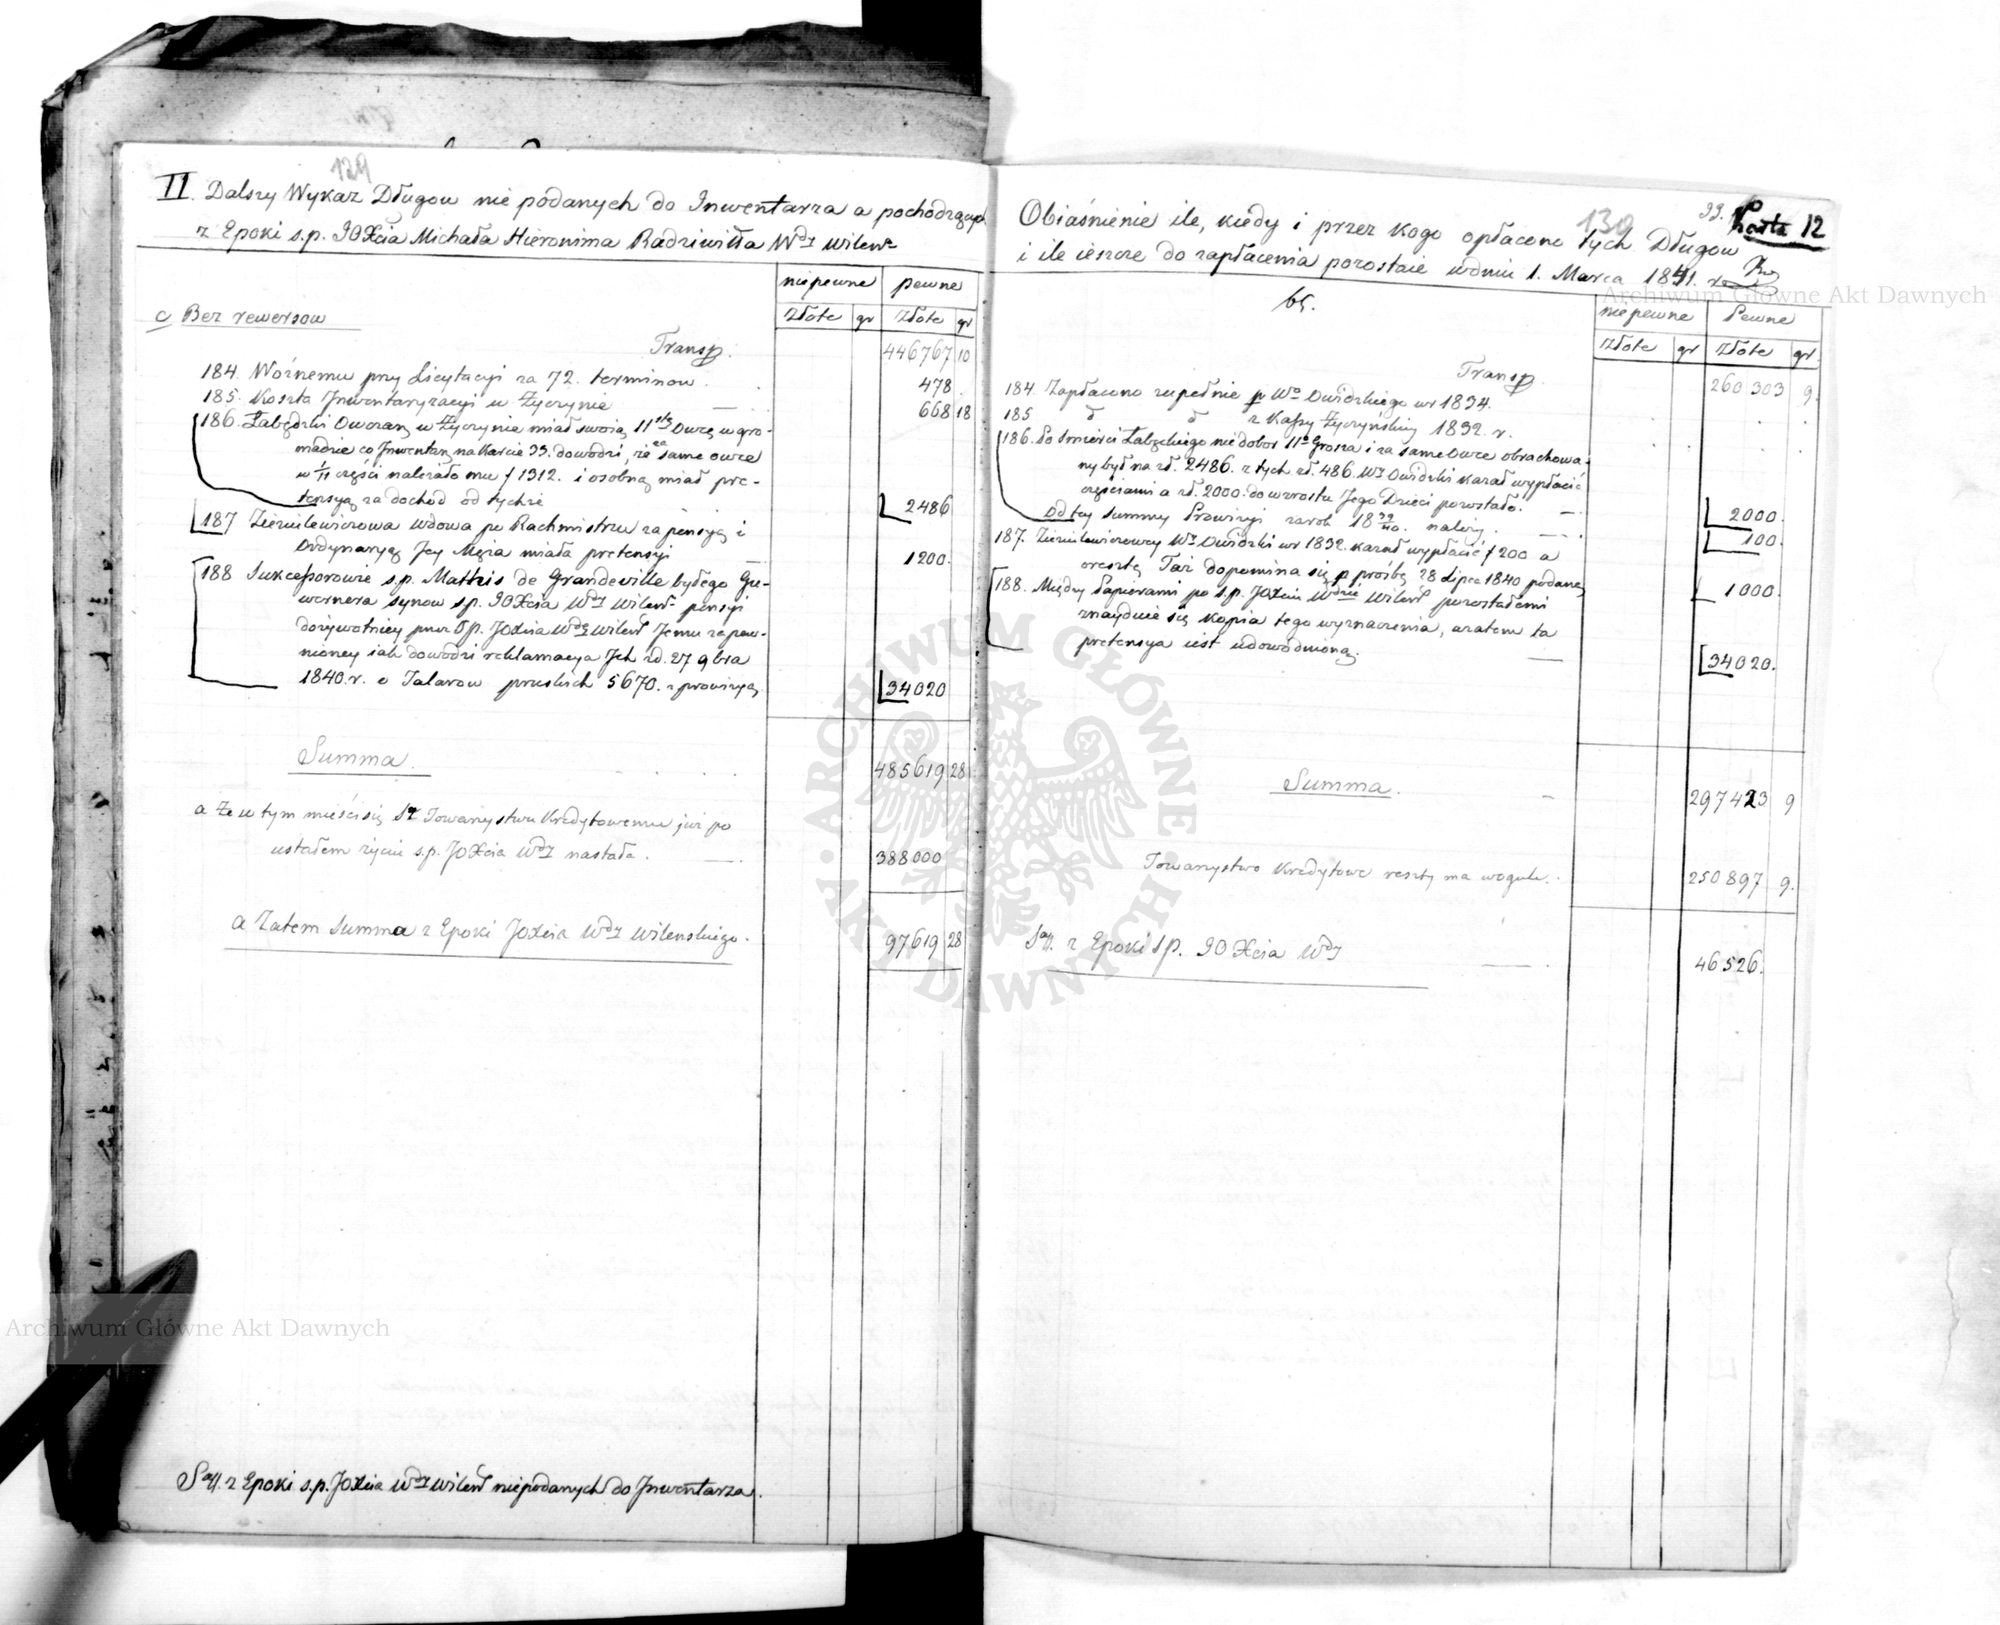 129
II. Dalszy Wykaz Długow nie podanych do Inwentarza a pochodzących
z Epoki s.p. JOXcia Michała Hieronima Radziwiłła Wdy Wileńo
niepewne pewne
złote gr złote gr
c/ Bez rewersow
Transp. 446767 10
184. Woźnemu przy Licytacyi za 72. terminow . 478 .
185. Koszta Inwentaryzacyi w Życzynie — 668 18
186. Łabędzki Owczarz w Życzynie miał swoią 11stą Owcę w gro-
madzie co Inwentarz na Karcie 33. dowodzi, że za same owce
w 1/11 części należało mu f 1312. i osobną miał pre-
tensyą za dochód od tychże 2486
187 Ziemilewiczowa wdowa po Rachmistrzu za pensyą i
Ordynaryą Jey Męża miała pretensyi — 1200.
188 Sukcessorowie s.p. Mathis de Grandeville byłego Gu-
wernera synow s.p. JOXcia Wdy Wileńo pensyi
dożywotniey przez Sp. JoXcia Wdę Wileń Jemu zapew-
nioney iak dowodzi reklamacya Jch zd. 27 9bra
1840. r. o Talarow pruskich 5670. z prowizyą 34020
Summa. 485619 28
a że w tym mieści się Towarzystwu Kredytowemu już po
ustałem życiu s.p. JOXcia Wdy nastałe . — 388000
a Zatem Summa z Epoki JoXcia Wdy Wilenskiego. 97619 28
z Epoki s.p. JoXcia Wdy Wileń niepodanych do Inwentarza.
130
33. Karta 12
Obiaśnienie ile, kiedy i przez kogo opłacono tych Długow
i ile ieszcze do zapłacenia pozostaie w dniu 1. Marca 1841. r.
65.
niepewne Pewne
złote gr złote gr.
Transp. 260 303 9.
184. Zapłacono zupełnie p Wo Owidzkiego w r 1834.
185 d d z Kassy Życzyńskiey 1832. r.
186. Po śmierci Łabęckiego niedobor 11o Grosza i za same Owce obrachowa-
ny był na zł. 2486. z tych zł. 486. Wy Owidzki kazał wypłacić
częściami a zł. 2000. do wzrostu Jego Dzieci pozostało. — 2000.
Od tey summy Prowizyi za rok 18 39/40. należy . — 100.
187. Ziemilewiczowey Wy Owidzki w r 1832. kazał wypłacić f 200 a
oresztę Taż dopomina się p prośbę 28 Lipca 1840 podaną 1000.
188. Między Papierami po s.p. JOXciu Wdzie Wileń pozostałemi
znayduie się Kopia tego wyznaczenia, a zatem ta
pretensya iest udowodnioną. — 34020.
Summa. — 297423 9
Towarzystwo Kredytowe reszty ma wogule. 250897 9.
z Epoki s.p. JOXcia Wdy — 46526.
Archiwum Główne Akt Dawnych
Archiwum Główne Akt Dawnych
ARCHIWUM GŁÓWNE AKT DAWNYCH